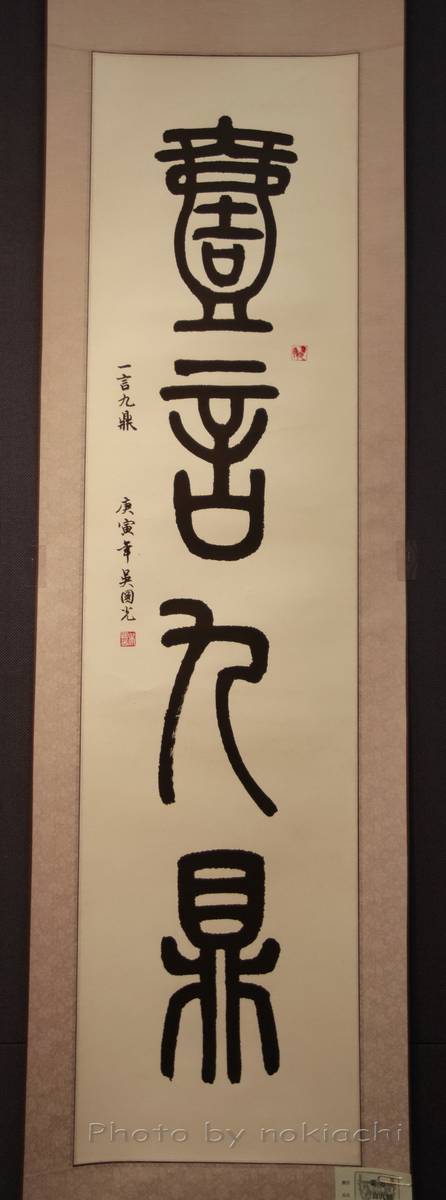 壹言九鼎
一言九鼎 庚寅年吳國光
Photo by nokiachi